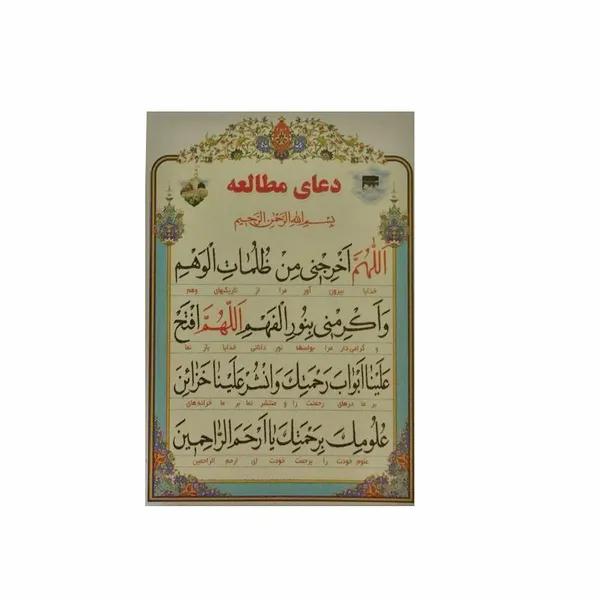 دعای مطالعه
بِسْمِ اللهِ الرَّحْمٰنِ الرَّحیمِ
اَللّٰهُمَّ اَخْرِجْنی مِنْ ظُلُماتِ الْوَهْمِ
خدایا بیرون آور مرا از تاریکیهای وهم
وَاَکْرِمْنی بِنُورِ الْفَهْمِ اَللّٰهُمَّ افْتَحْ
و گرامی دار مرا بواسطه نور دانائی خدایا باز نما
عَلَیْنا اَبْوابَ رَحْمَتِكَ وَانْشُرْ عَلَیْنا خَزائِنَ
بر ما درهای رحمتت را و منتشر نما بر ما خزانه‌های
عُلُومِكَ بِرَحْمَتِكَ یا اَرْحَمَ الرّاحِمینَ
علوم خودت را برحمت خودت ای ارحم الراحمین